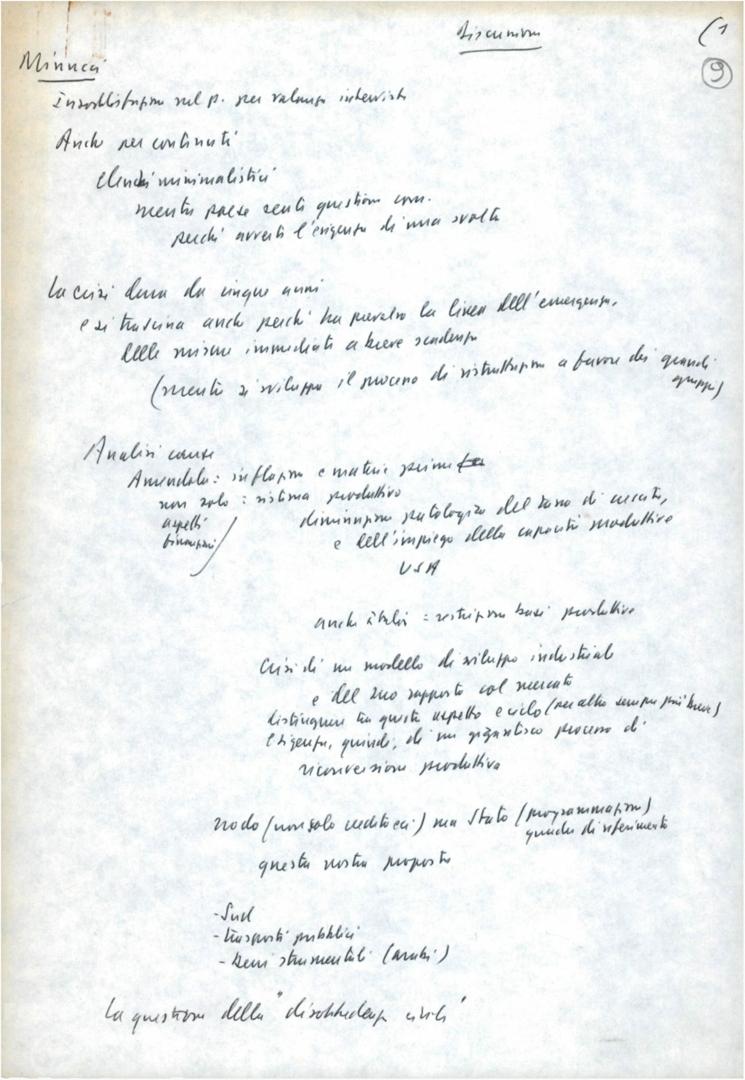 Discussione
(1
9
Minucci
Insoddisfazione sul p. per valanga interviste
Anche per contenuti
Elenchi minimalistici
mentre paese sente questione com.
perché avverte l'esigenza di una svolta
La crisi dura da cinque anni
e si trascina anche perché ha prevalso la linea dell'emergenza,
delle misure immediate a breve scadenza
(mentre si sviluppa il processo di ristrutturazione a favore dei grandi
gruppi)
Analisi cause
Amendola: inflazione e materie prime
non solo: sistema produttivo
aspetti
finanziari
diminuzione patologica del tasso di crescita,
e dell'impiego della capacità produttiva
USA
anche Italia = restrizione basi produttive
Crisi di un modello di sviluppo industriale
e del suo rapporto col mercato
distinguere tra questo aspetto e ciclo (peraltro sempre più breve)
Esigenza, quindi, di un gigantesco processo di
riconversione produttiva
nodo (non solo credito ecc) ma Stato (programmazione)
quadro di riferimento
questa nostra proposta
- Sud
- trasporti pubblici
- beni strumentali (arabi)
La questione della "disobbedienza civile"